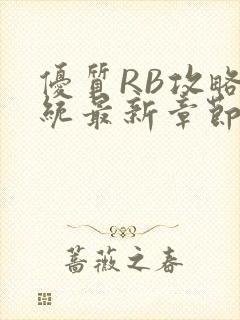 優質RB攻略
統最新章節
薔薇之春